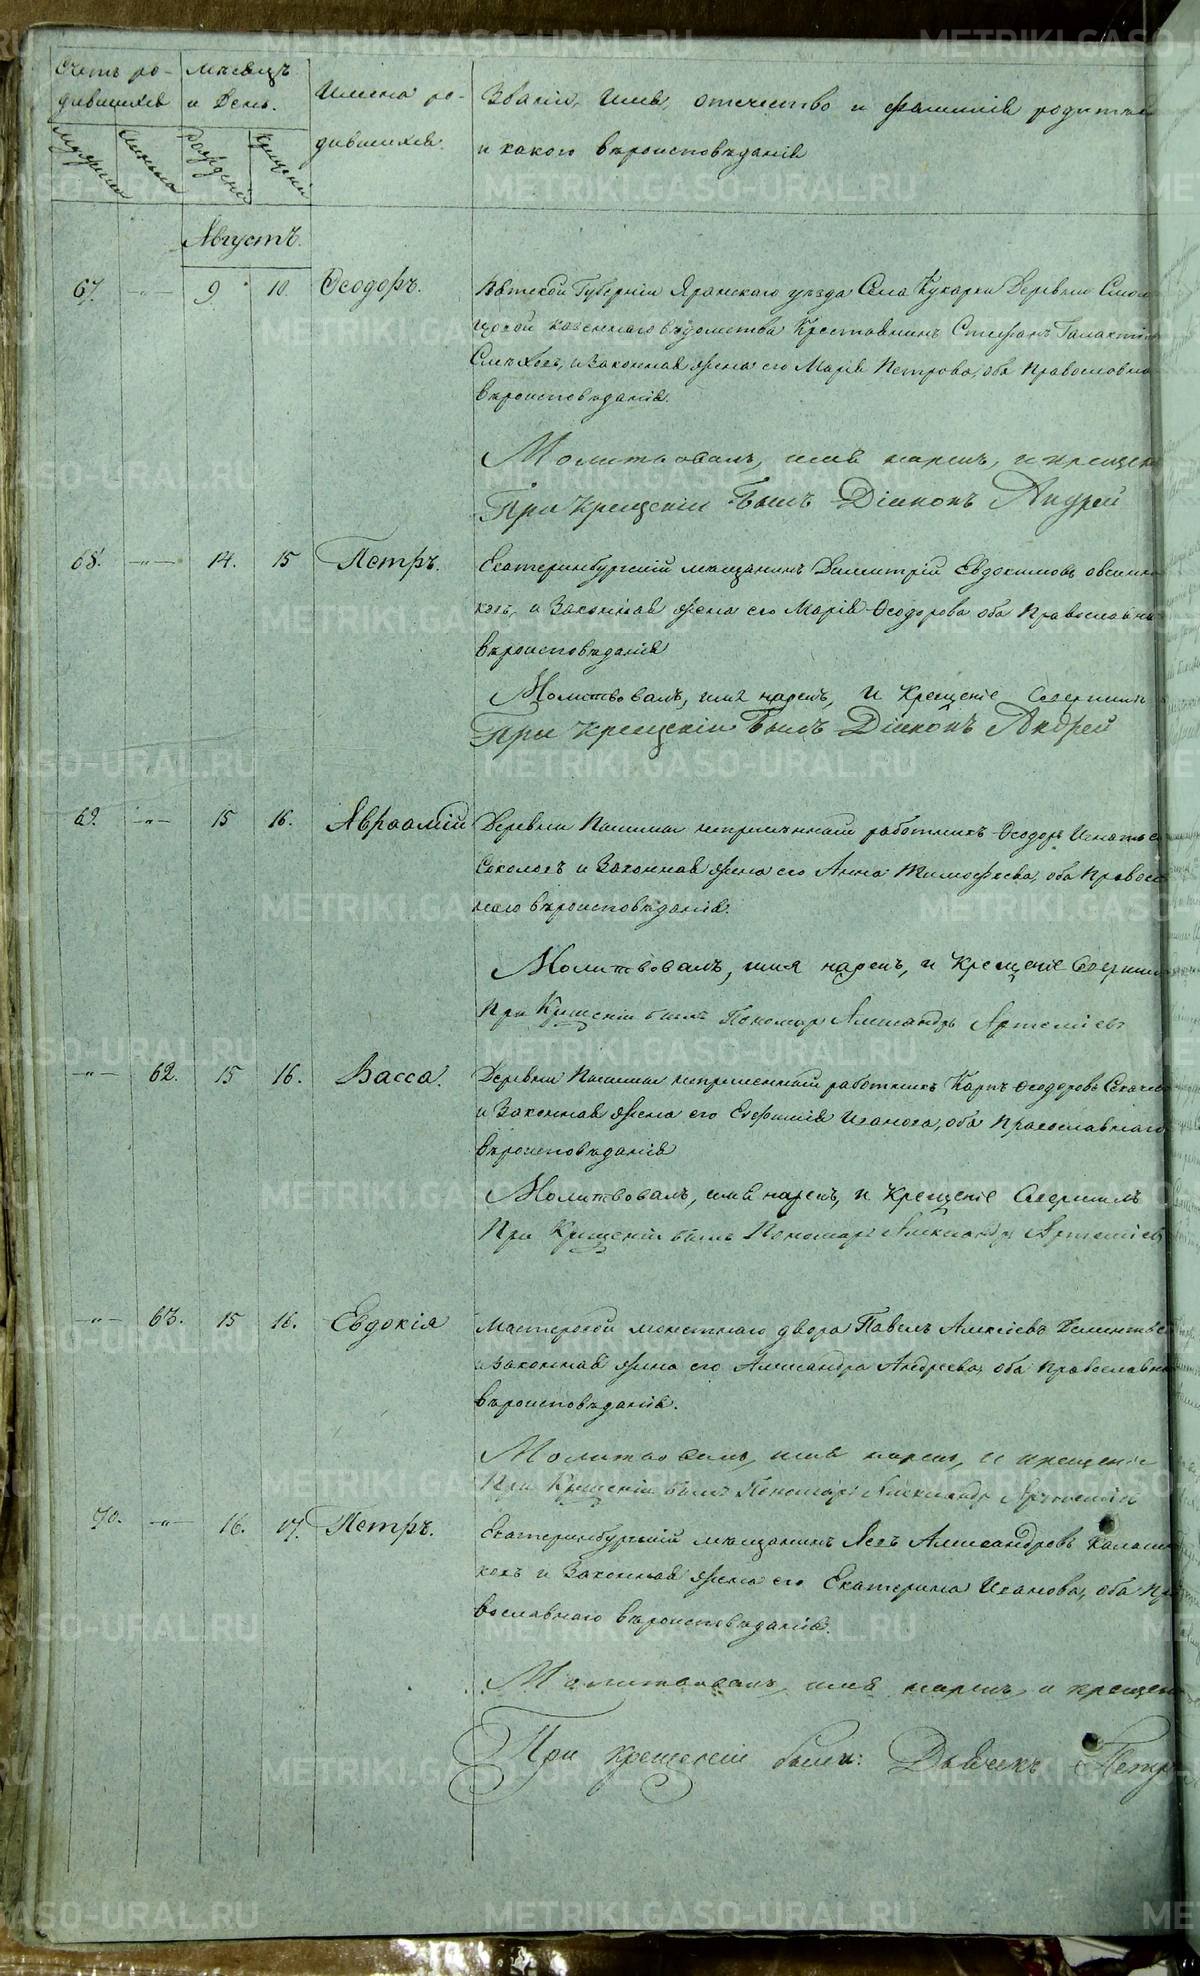 Счетъ ро-
дившихся
Мѣсяцъ
и День.
Имена ро-
дившихся.
Званіе, Имя, отечество и фамилія родител
и какого вѣроисповѣданія
Мужеска
Женска
Рожденія
Крещенія
Августъ.
67. —„— 9. 10. Ѳеодоръ. Вятской Губерніи Яранскаго уѣзда Села Кукарки Деревни
казеннаго вѣдомства Крестьянинъ Стефанъ Галактіон
и Законная жена его Марія Петрова, оба Православна
вѣроисповѣданія.
Молитвовалъ, имя нарекъ, и крещен
При Крещеніи былъ Діаконъ Андрей
68. —„— 14. 15 Петръ. Екатеринбургскій мѣщанинъ Димитрій Евдокимовъ овсянни
ковъ, и Законная жена его Марія Ѳеодорова оба Православна
вѣроисповѣданія
Молитвовалъ, имя нарекъ, и Крещеніе Совершилъ
При Крещеніи былъ Діаконъ Андрей
69. —„— 15 16. Авраамій Деревни непремѣнный работникъ Ѳеодоръ Игнатьев
Соколовъ и Законная жена его Анна Тимофѣева, оба Правосл
наго вѣроисповѣданія.
Молитвовалъ, имя нарекъ, и Крещеніе Соверши
При Крещеніи былъ Пономарь Александръ Артеміевъ
—„— 62. 15 16. Васса. Деревни непремѣнный работникъ Карпъ Ѳеодоровъ
и Законная жена его Евфимія Иванова, оба Православнаго
вѣроисповѣданія
Молитвовалъ, имя нарекъ, и Крещеніе Совершилъ
При Крещеніи былъ Пономарь Александръ Артеміевъ
—„— 63. 15 16. Евдокія Мастеровой монетнаго двора Павелъ Алексіевъ Дементьев
и Законная жена его Александра Андреева, оба Православна
вѣроисповѣданія.
Молитвовалъ, имя нарекъ, и крещеніе
При Крещеніи былъ Пономарь Александръ Артеміевъ
70. —„— 16. 17. Петръ. Екатеринбургскій мѣщанинъ Левъ Александровъ Калашн
ковъ и Законная жена его Екатерина Иванова, оба Пра
вославнаго вѣроисповѣданія.
Молитвовалъ, имя нарекъ, и крещен
При крещеніи были: Дьячекъ Петръ
METRIKI.GASO-URAL.RU